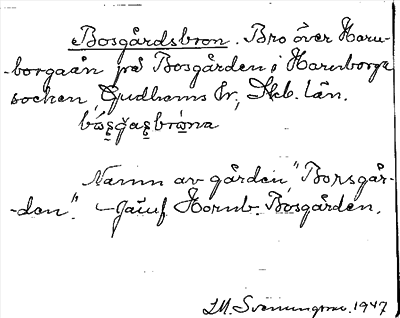 Bosgårdsbron. Bro över Horn-
borgaån på Bosgården i Hornborga
socken, Gudhems hr, Skb. län.
Namn av gården "Borsgår-
den". – Jämf Hornb. Bosgården.
1947